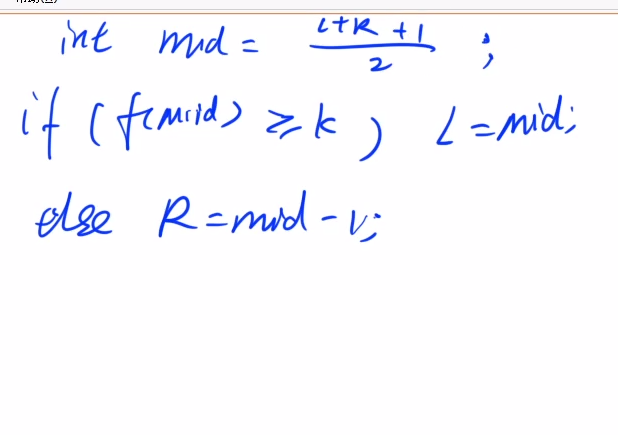 int mid = (L+R+1)/2 ;
if (f(mid) ≥ k) L = mid;
else R = mid - 1;